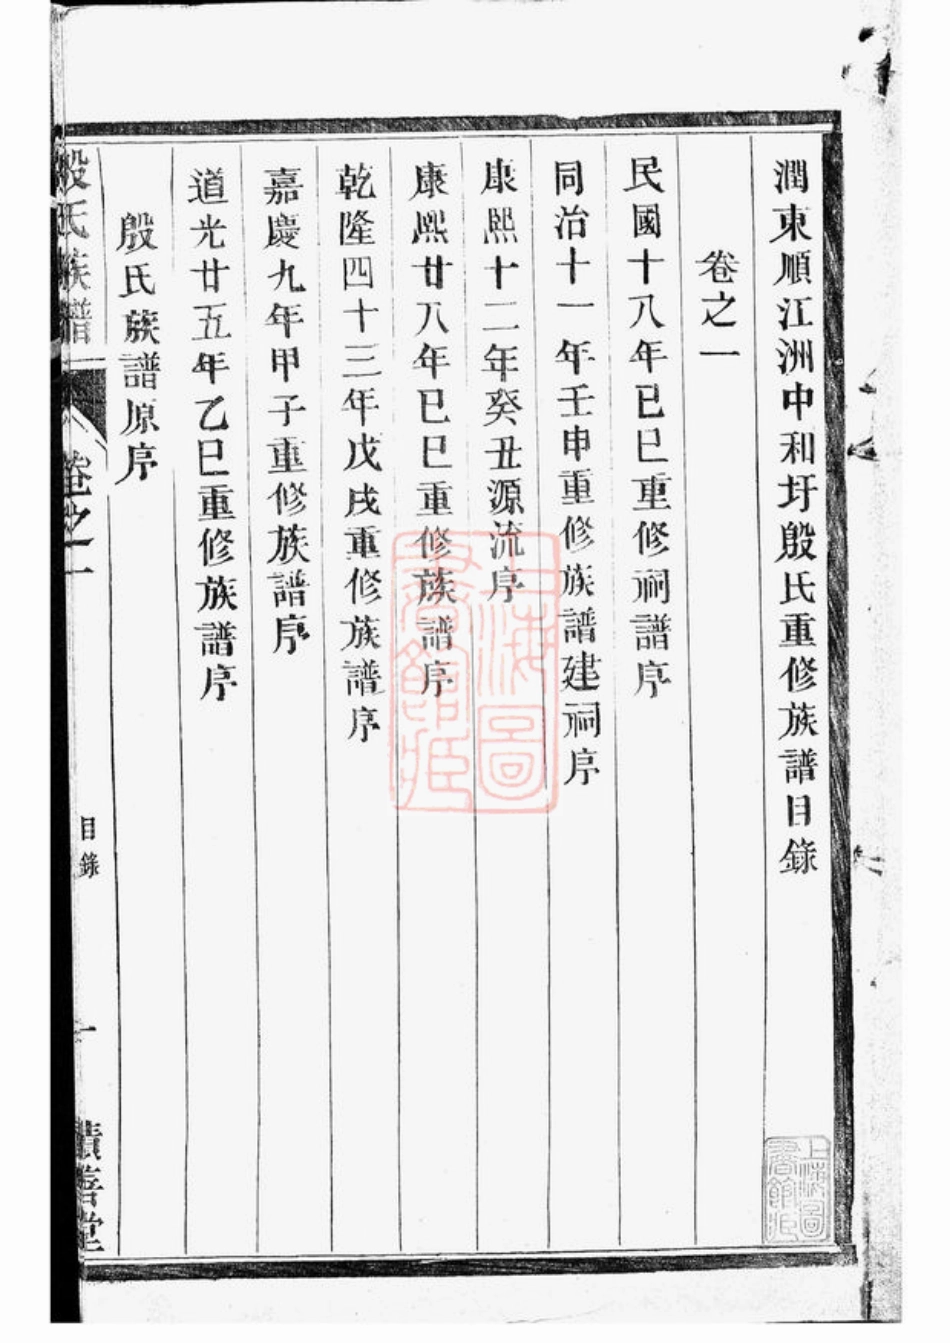 潤東順江洲中和圩殷氏重修族譜目錄
卷之一
民國十八年己巳重修祠譜序
同治十一年壬申重修族譜建祠序
康熙十二年癸丑源流序
康熙廿八年己巳重修族譜序
乾隆四十三年戊戌重修族譜序
嘉慶九年甲子重修族譜序
道光廿五年乙巳重修族譜序
殷氏族譜原序
殷氏族譜
卷之一
目錄
一
積善堂
上海圖
書館藏
上海圖
書館藏